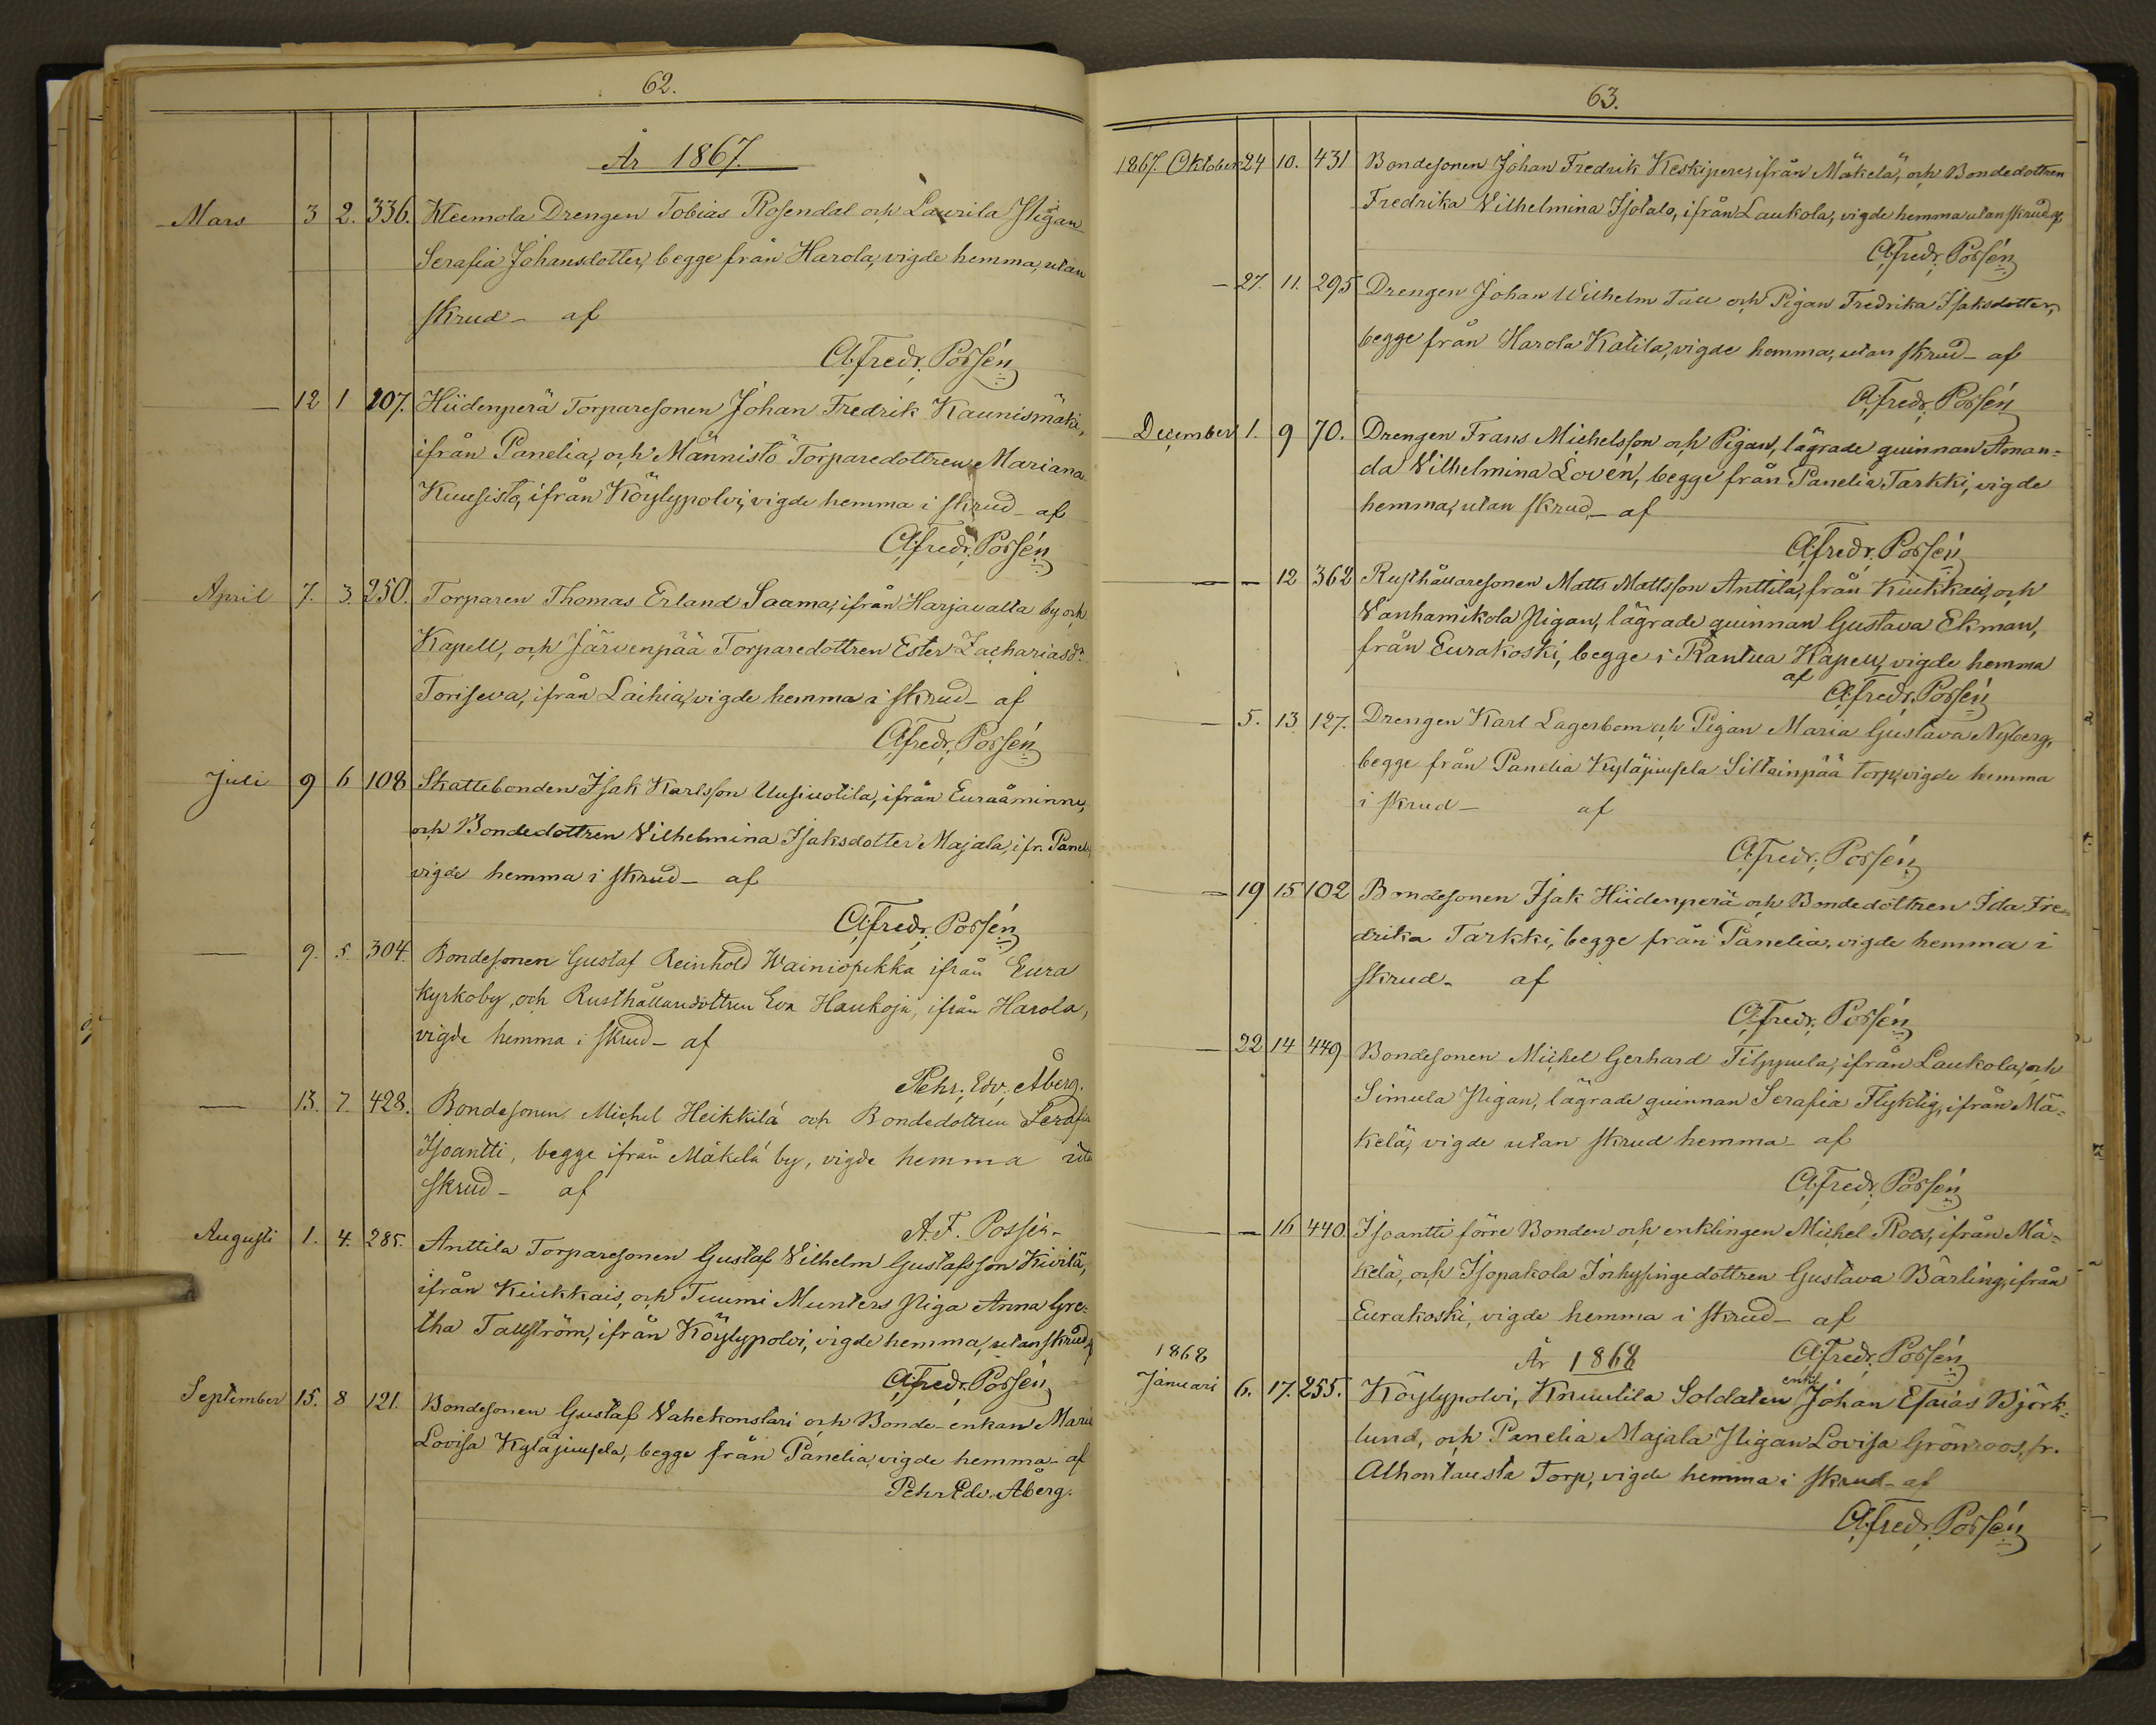 62.
År 1867.
Mars 3 2. 336. Kleemola Drengen Tobias Rosendal och Laurila Pigan
Serafia Johansdotter, begge från Harola, vigde hemma, utan
skrud - af
A. Fredr. Possén
— 12 1 107. Hiidenperä Torparesonen Johan Fredrik Kaunismäki,
ifrån Panelia, och Männistö Torparedottren Mariana
Kuusisto, ifrån Köylypolvi, vigde hemma i skrud - af
A. Fredr. Possén
April 7. 3. 250. Torparen Thomas Erland Saama, ifrån Harjavalta by och
Kapell, och Järvenpää Torparedottren Ester Zachariasdr
Toriseva, ifrån Laihia, vigde hemma i skrud - af
A. Fredr. Possén
Juli 9 6 108 Skattebonden Isak Karlsson Uusiuotila, ifrån Euraåminne,
och Bondedottren Vilhelmina Isaksdotter Majala, ifr. Panelia
vigde hemma i skrud - af
A. Fredr. Possén
— 9. 5 304. Bondesonen Gustaf Reinhold Wainiopekka ifrån Eura
kyrkoby, och Rusthållaredottren Eva Haukoja, ifrån Harola,
vigde hemma i skrud - af
Pehr. Edv. Åberg.
— 13. 7. 428. Bondesonen Michel Heikkilä och Bondedottren Serafia
Isoantti, begge ifrån Mäkelä by, vigde hemma utan
skrud - af
A. F. Possén.
Augusti 1. 4. 285. Anttila Torparesonen Gustaf Vilhelm Gustafsson Kivilä,
ifrån Kiukkais, och Tuumi Munters Piga Anna Gre=
tha Tallström, ifrån Köylypolvi, vigde hemma, utan skrud af
A. Fredr. Possén
September 15. 8 121. Bondesonen Gustaf Vahekonstari och Bonde-enkan Maria
Lovisa Kyläjuusela, begge från Panelia, vigde hemma - af
Pehr Edv. Åberg.
63.
1867. Oktober 24 10. 431 Bondesonen Johan Fredrik Keskipere, ifrån Mäkelä, och Bondedottren
Fredrika Vilhelmina Isotalo, ifrån Laukola, vigde hemma utan skrud af
A. Fredr. Possén
— 27. 11. 295 Drengen Johan Wilhelm Tall och Pigan Fredrika Isaksdotter,
begge från Harola Katila, vigde hemma, utan skrud - af
A. Fredr. Possén
December 1. 9 70. Drengen Frans Michelsson och Pigan, lägrade quinnan Aman=
da Vilhelmina Lovén, begge från Panelia Tarkki, vigde
hemma, utan skrud - af
A. Fredr. Possén
— — 12 362 Rusthållaresonen Matts Mattsson Anttila, från Kiukkais, och
Vanhamikola Pigan, lägrade quinnan Gustava Ekman,
från Eurakoski, begge i Kapell, vigde hemma
af A. Fredr. Possén
— 5. 13 127. Drengen Karl Lagerbom och Pigan Maria Gustava Nyberg,
begge från Panelia Kyläjuusela Siltainpää torp, vigde hemma
i skrud - af
A. Fredr. Possén
— 19 15 102 Bondesonen Isak Hiidenperä och Bondedottren Ida Fre=
drika Tarkki, begge från Panelia, vigde hemma i
skrud - af
A. Fredr. Possén
— 22 14 449 Bondesonen Michel Gerhard Filppula, ifrån Laukola, och
Simula Pigan, lägrade quinnan Serafia Flyktig, ifrån Mä=
kelä, vigde utan skrud hemma - af
A. Fredr. Possén
— — 16 440. Isoantti förre Bonden och enklingen Michel Roos, ifrån Mä=
kelä, och Isopakola Inhysingedottren Gustava Bärling, ifrån
Eurakoski, vigde hemma i skrud - af
A. Fredr. Possén
1868
År 1868
enkl.
Januari 6. 17. 255. Köylypolvi, Knuutila Soldaten Johan Esaias Björk=
lund, och Panelia Majala Pigan Lovisa Grönroos, fr.
Alhontausta Torp, vigde hemma i skrud - af
A. Fredr. Possén